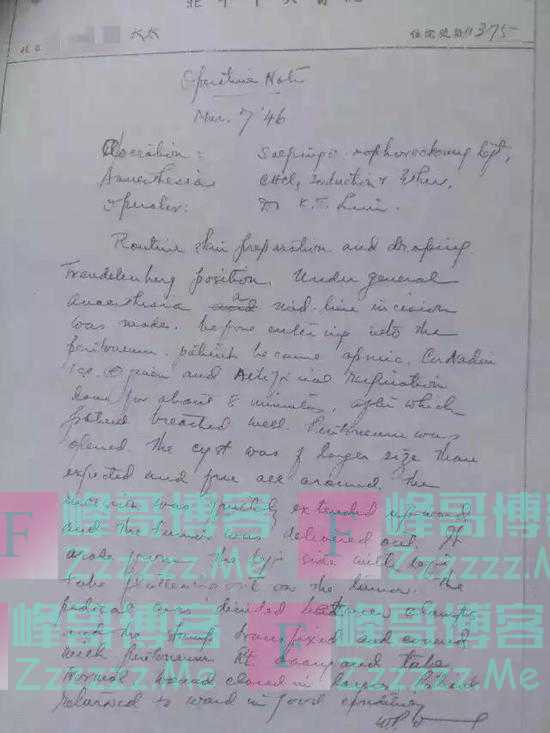 住院號數 11375
Operative Note
Mar. 7 '46
Operation: Salpingo-oophorectomy left,
Anaesthesia Ethyl, Induction & Ether.
Operator: Dr K.T. Lim.
Routine skin preparation and draping
Trendelenberg position. Under general
anaesthesia a mid-line incision
was made. Before entering into the
peritoneum. patient became apneic. Coramin
1cc. given and Artificial respiration
done for about 8 minutes, after which
patient breathed well. Peritoneum was
opened. The cyst was of larger size than
expected and free all around. The
incision was quickly extended upward
and the tumor was delivered out. It
arose from the left side with left
tube flattening out on the tumor. The
pedicle was divided between clamps
with the stump transfixed and covered
with peritoneum. Rt. ovary and tube
normal. Wound closed in layers. Patient
returned to ward in good condition
F 峰哥博客 Zzzzzz.Me
F 峰哥博客 Zzzzzz.Me
峰哥博客 Zzzzzz.Me
F 峰哥博客 Zzzzzz.Me